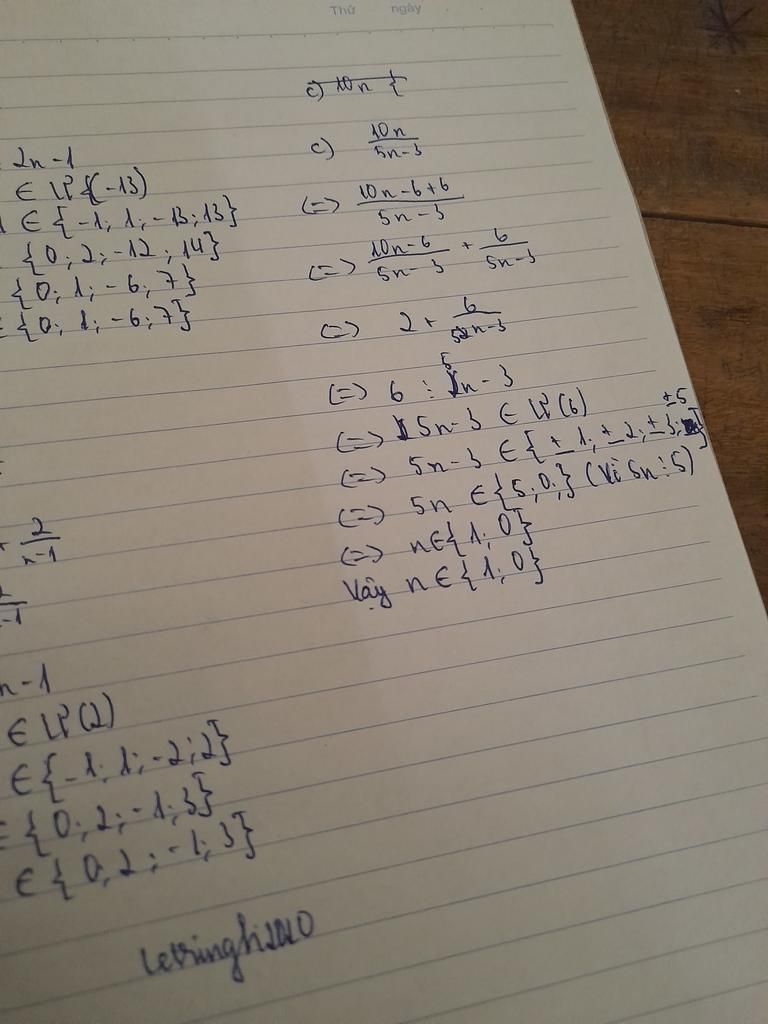 Thứ ngày
= 2n-1
∈ Ư(-13)
∈ {-1; 1; -13; 13}
{0; 2; -12; 14}
{0; 1; -6; 7}
∈ {0; 1; -6; 7}
+ 2/n-1
n-1
∈ Ư(2)
∈ {-1; 1; -2; 2}
∈ {0; 2; -1; 3}
∈ {0, 2; -1; 3}
c) 10n {
c) 10n/5n-3
(=) 10n-6+6/5n-3
(=>) 10n-6/5n-3 + 6/5n-3
(=) 2 + 6/5n-3
(=) 6 ⋮ 5n-3
(=>) 5n-3 ∈ Ư(6)
(=>) 5n-3 ∈ {±1; ±2; ±3; ±5}
(=>) 5n ∈ {5; 0;} (Vì 5n ⋮ 5)
(=>) n ∈ {1; 0}
Vậy n ∈ {1; 0}